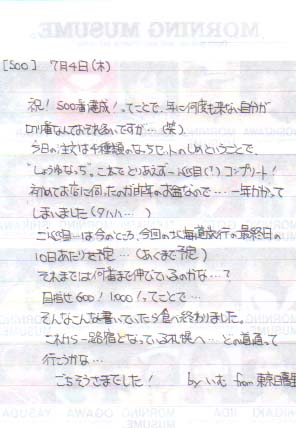 MORNING MUSUME.
[500] 7月4日(木)
祝！500番達成！ってことで、年に何度も来ない自分が
切り番なんておそれ多いですが…(笑)
今日の注文は4種類のなっちセットのしめということで、
"しょうゆなっち"。これでとりあえず一巡目(！)コンプリート！
初めてお店に伺ったのが昨年のお盆なので…一年かかって
しまいました(タハハ…)
二巡目…は今のところ、今回の北海道旅行の最終日の
10日あたりを予定…(あくまで予定)
それまでは何番まで伸びているのかな…？
目指せ600！1000！ってことで…
そんなこんな書いていたら食べ終わりました。
これから一路宿となっている札幌へ…どの道通って
行こうかな…
ごちそうさまでした！ byいむ from東京日野
IIDA
MORNING OGAWA YASUDA